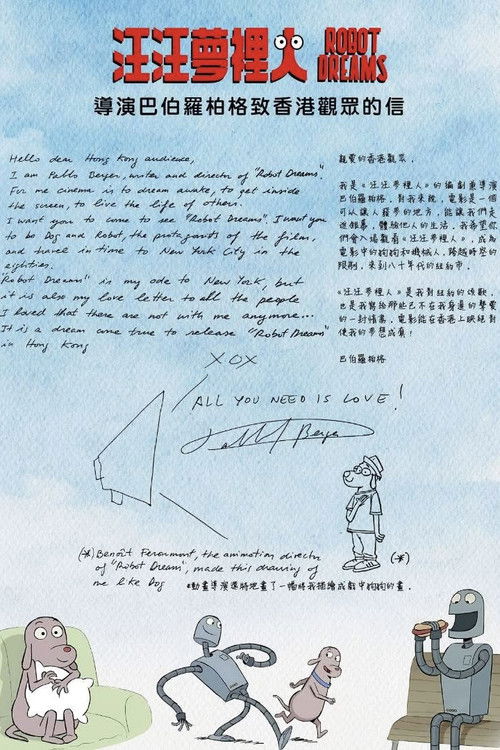 汪汪夢裡人 ROBOT DREAMS
導演巴伯羅柏格致香港觀眾的信
Hello dear Hong Kong audience,
I am Pablo Berger, writer and director of "Robot Dreams".
For me cinema is to dream awake, to get inside
the screen, to live the life of others.
I want you to come to see "Robot Dreams" I want you
to be Dog and Robot, the protagonists of the film,
and travel in time to New York City in the
eighties.
"Robot Dreams" is my ode to New York, but
it is also my love letter to all the people
I loved that there are not with me anymore...
It is a dream come true to release "Robot Dreams"
in Hong Kong
XOX
親愛的香港觀眾，
我是《汪汪夢裡人》的編劇兼導演
巴伯羅柏格，對我來說，電影是一個
可以讓人發夢的地方，能讓我們走
近銀幕，體驗他人的生活，我希望你
們會入場觀看《汪汪夢裡人》，成為
電影中的狗狗和機械人，跨越時空的
限制，來到八十年代的紐約市。
《汪汪夢裡人》是我對紐約的頌歌，
也是我寫給那些已不在我身邊的摯愛
的一封情書，電影能在香港上映絕對
使我的夢想成真！
巴伯羅柏格
ALL YOU NEED IS LOVE!
Pablo Berger
(*)
(*) Benoît Feroumont, the animation director
of "Robot Dream", made this drawing of
me like Dog
*動畫導演還將他畫了一幅將我描繪成戲中狗狗的畫．